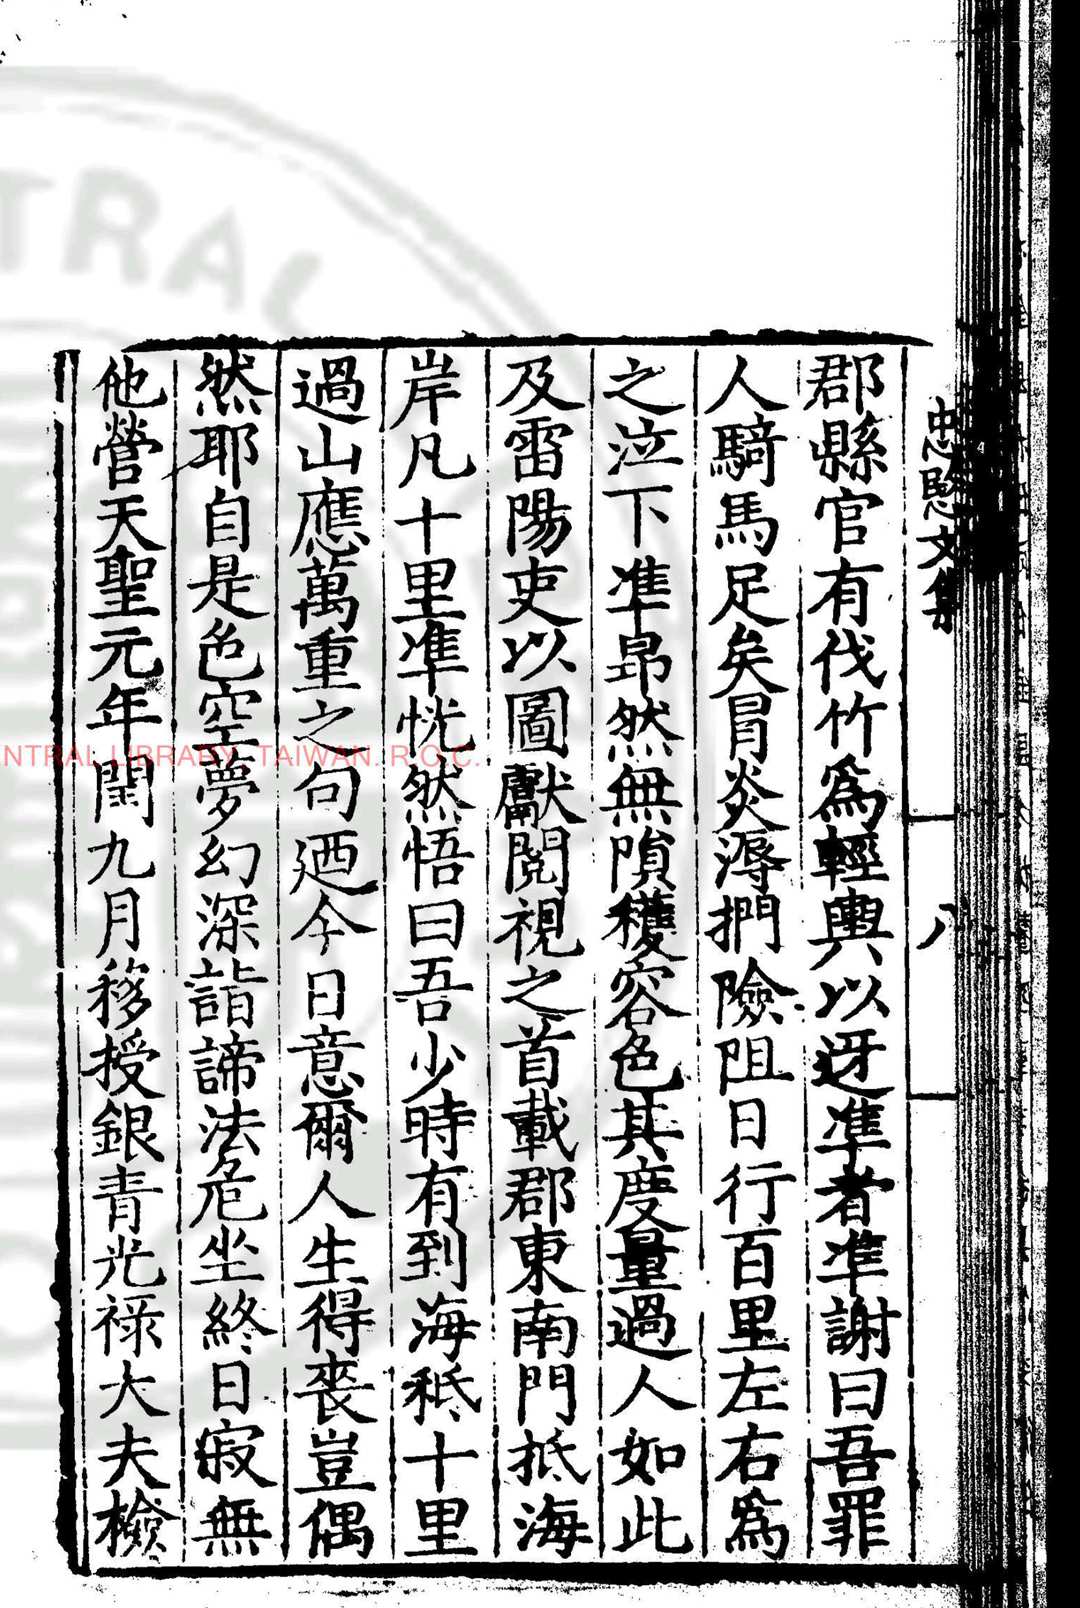 郡縣官有伐竹爲輕輿以迓準者準謝曰吾罪
人騎馬足矣冒炎溽捫險阻日行百里左右爲
之泣下準昻然無隕穫容色其度量過人如此
及雷陽吏以圖獻閱視之首載郡東南門抵海
岸凡十里準恍然悟曰吾少時有到海秪十里
過山應萬重之句廼今日意爾人生得喪豈偶
然耶自是色空夢幻深詣諦法危坐終日寂無
他營天聖元年閏九月移授銀青光祿大夫檢
忠愍文集
八
NTRAL LIBRARY, TAIWAN. R.O.C.
TRAL